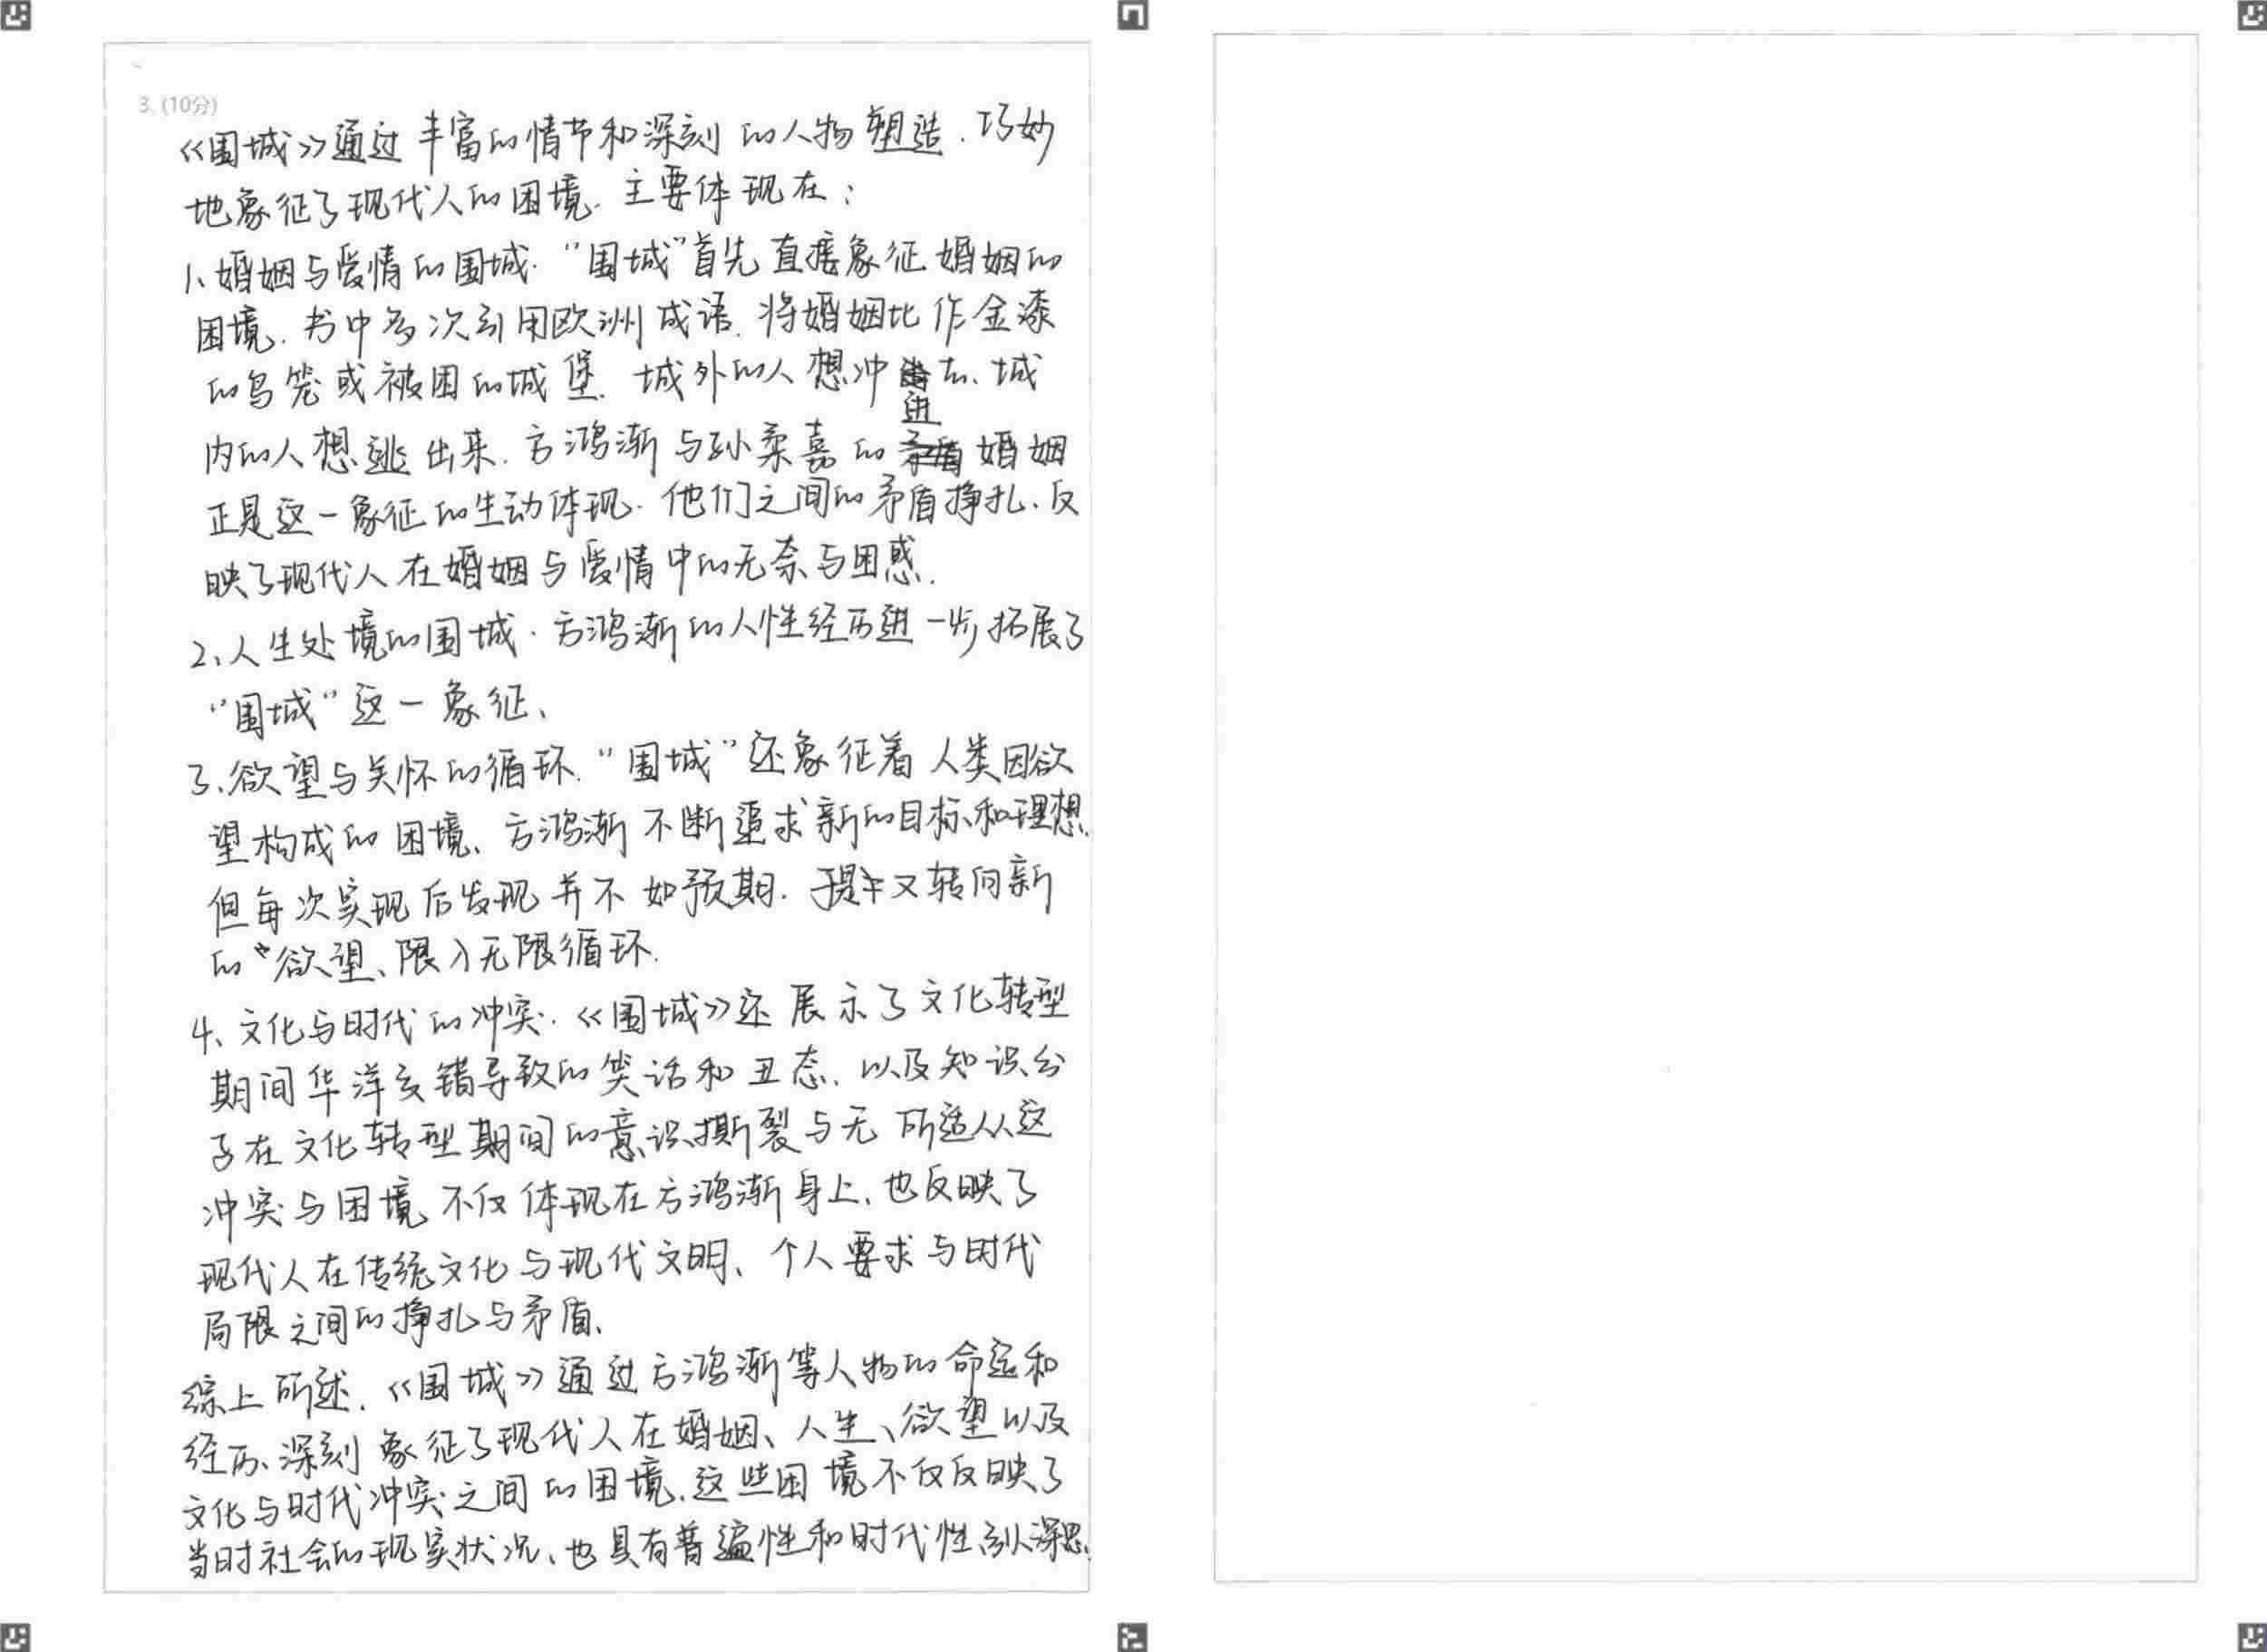 3. (10分)
《围城》通过丰富的情节和深刻的人物塑造.巧妙
地象征了现代人的困境.主要体现在:
1、婚姻与爱情的围城."围城"首先直接象征婚姻的
困境.书中多次引用欧洲成语.将婚姻比作金漆
的鸟笼或被困的城堡.城外的人想冲进去、城
内的人想逃出来.方鸿渐与孙柔嘉的婚姻
正是这一象征的生动体现.他们之间的矛盾挣扎、反
映了现代人在婚姻与爱情中的无奈与困惑.
2、人生处境的围城.方鸿渐的人性经历进一步拓展了
"围城"这一象征、
3、欲望与关怀的循环."围城"还象征着人类因欲
望构成的困境、方鸿渐不断追求新的目标和理想.
但每次实现后发现并不如预期.又转向新
的欲望、限入无限循环.
4、文化与时代的冲突.《围城》还展示了文化转型
期间华洋交错导致的笑话和丑态.以及知识分
子在文化转型期间的意识撕裂与无所适从这
冲突与困境不仅体现在方鸿渐身上、也反映了
现代人在传统文化与现代文明、个人要求与时代
局限之间的挣扎与矛盾、
综上所述.《围城》通过方鸿渐等人物的命运和
经历、深刻象征了现代人在婚姻、人生、欲望以及
文化与时代冲突之间的困境.这些困境不仅反映了
当时社会的现实状况、也具有普遍性和时代性、引人深思.